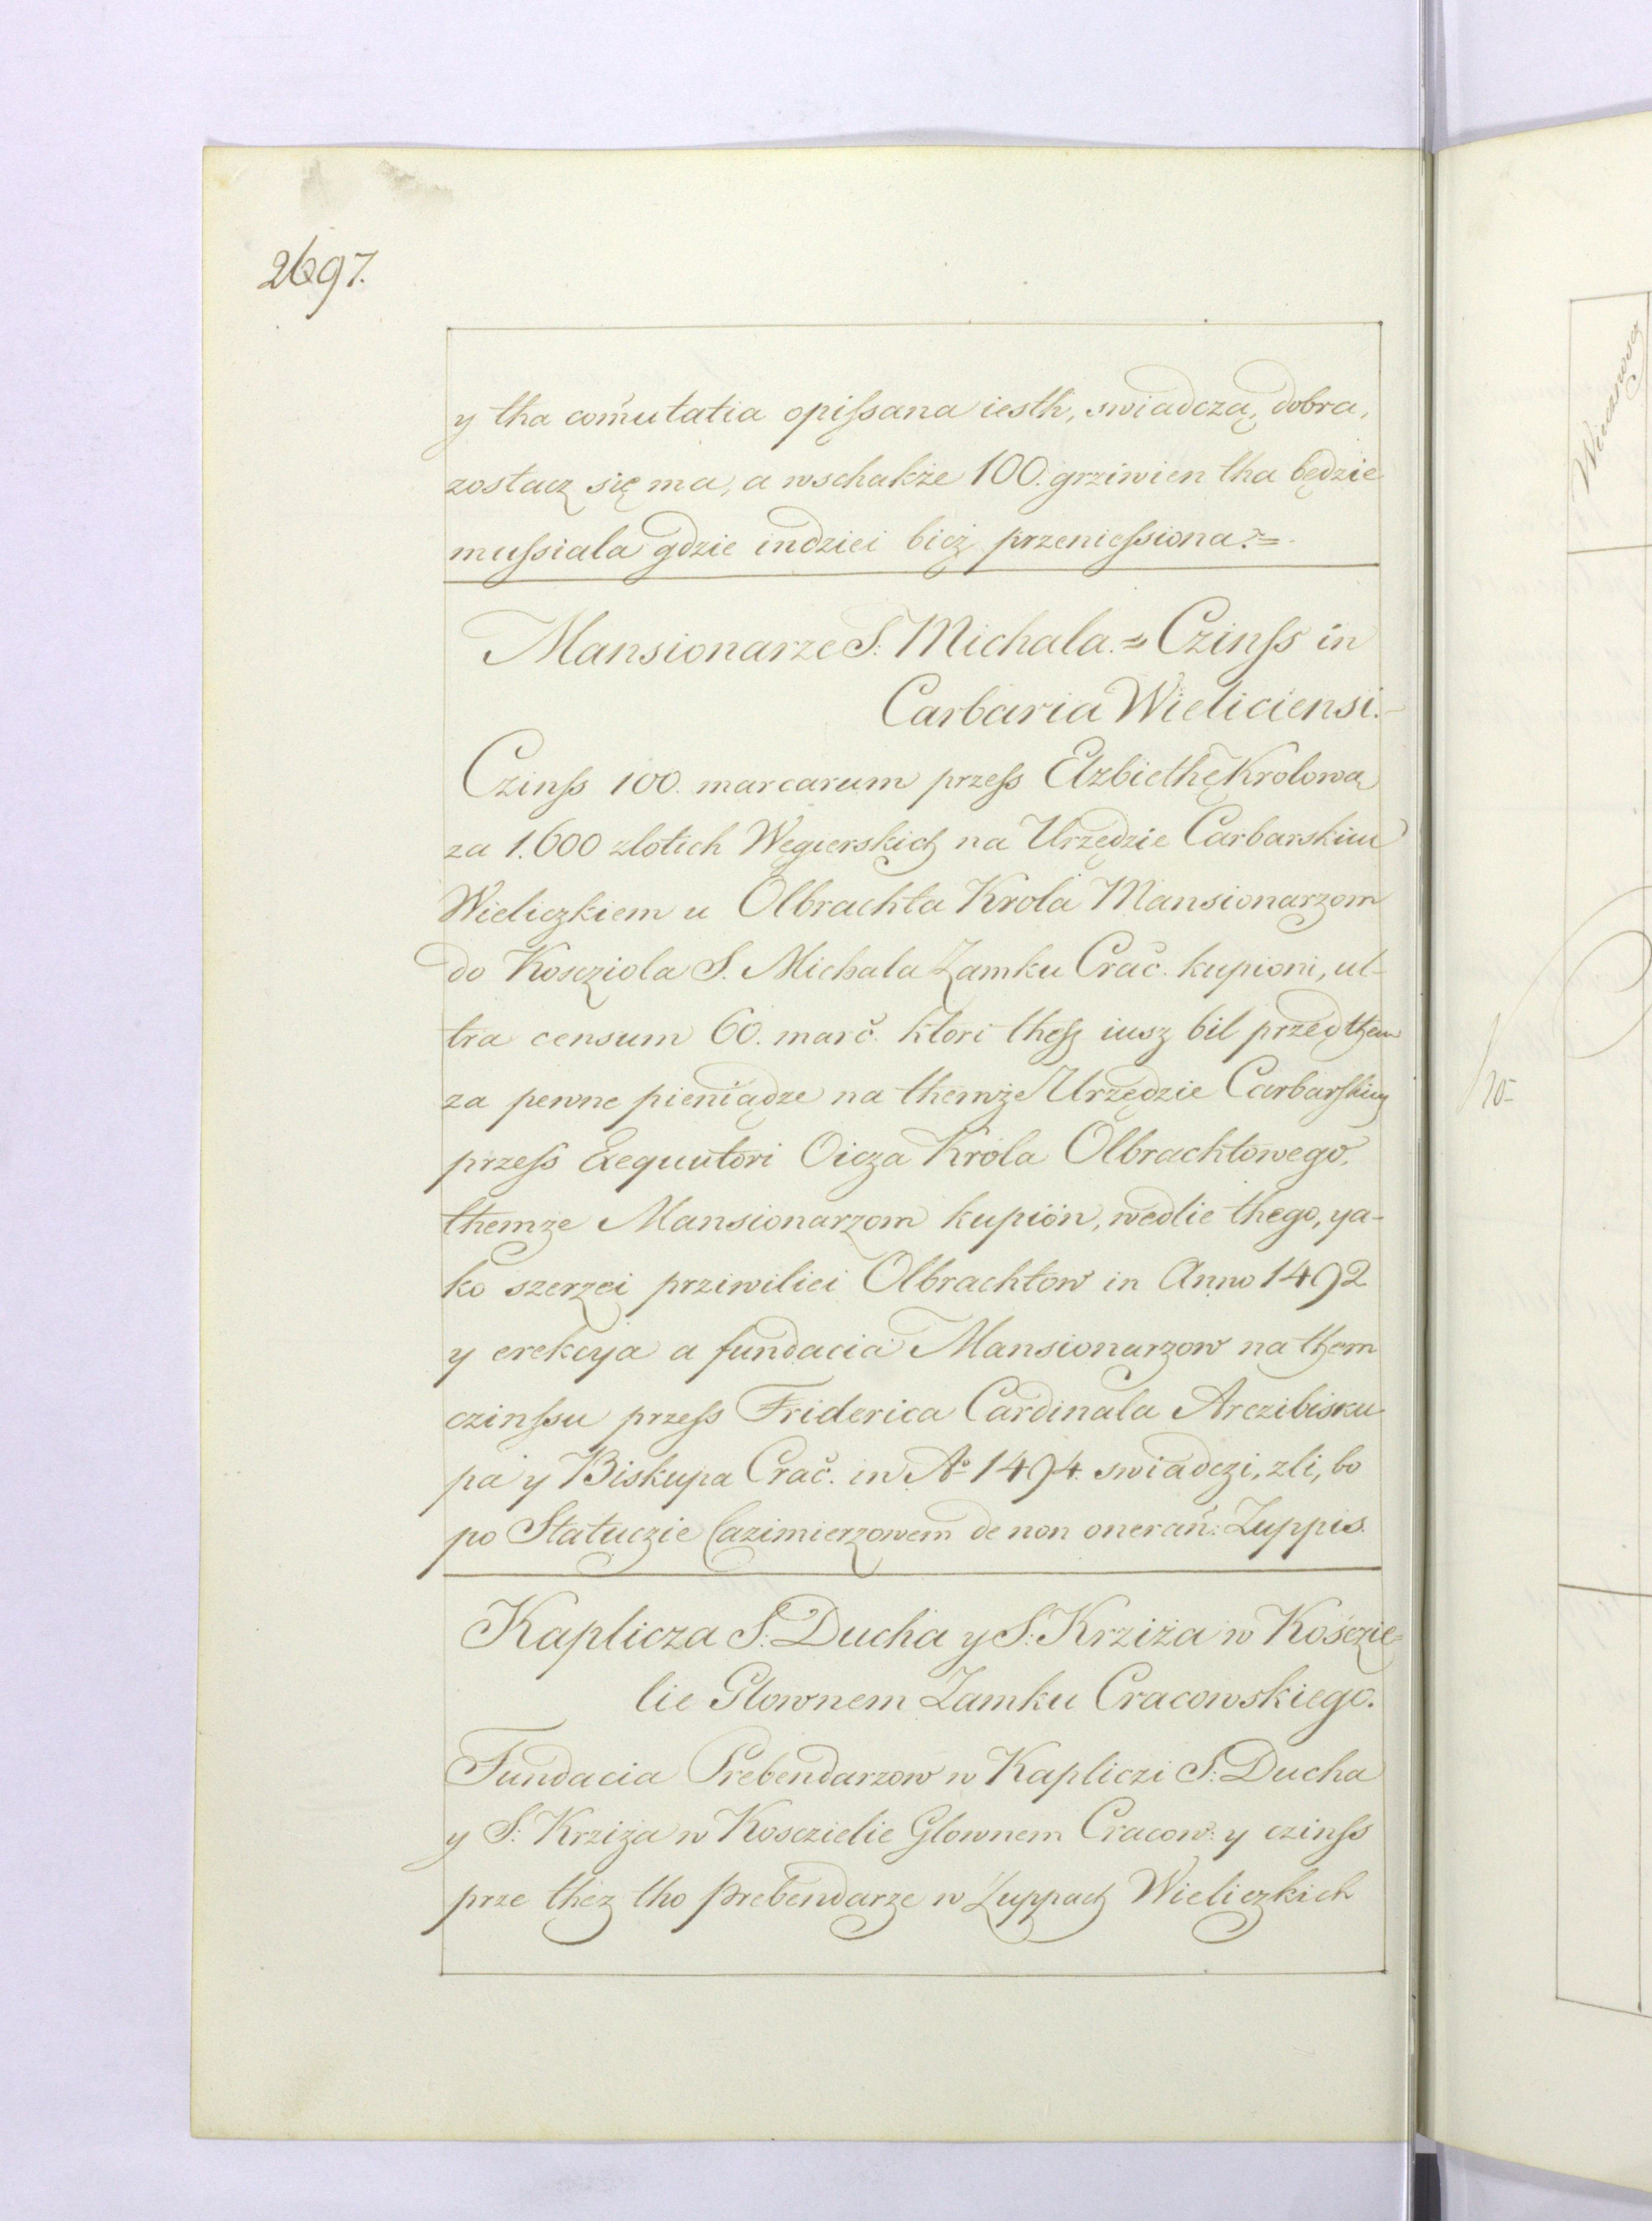 2697.
y tha com̃utatia opiſsana iesth, swiadczą, dobra,
zostacz się ma, a wschakże 100. grziwien tha będzie
muſsiala gdzie indziei bicz przenieſsiona.
Mansionarze S: Michala. = Czinſs in
Carbaria Wieliciensi.
Czinſs 100. marcarum przeſs Elzbiethę Krolową
za 1.600 zlotich Węgierskich na Urzędzie Carbarskim
Wieliczkiem u Olbrachta Krola Mansionarzom
do Kosczjola S. Michala Zamku Crac̃. kupioni, ul-
tra censum 60. marc̃. ktori theſz iusz bil przedthem
za pewne pieniądze na themże Urzędzie Carbarſkim
przeſs Exequutori Oicza Krola Olbrachtowego,
themze Mansionarzom kupion, wedlie thego, ya-
ko szerzei prziwiliei Olbrachtow in Anno 1492
y erekcya a fundacia Mansionarzow na them
czinſsu przeſs Friderica Cardinala Arczibisku
pa y Biskupa Crac̃. in Aº 1494. swiadczi, zli, bo
po Statuczie Cazimierzowem de non onerañ: Zuppis.
Kaplicza S: Ducha y S: Krziża w Kośczie=
lie Glownem Zamku Cracowskiego.
Fundacia Prebendarzow w Kapliczi S: Ducha
y S: Krziża w Kosczielie Glownem Cracow: y czinſs
prze thez tho prebendarze w Zuppach Wieliczkich